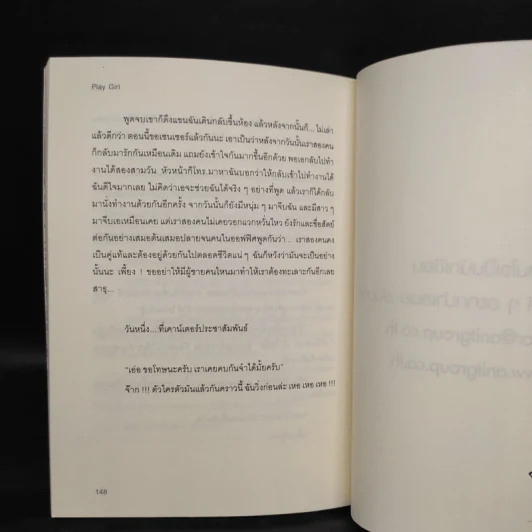 Play Girl
พูดจบเขาก็ดึงแขนฉันเดินกลับขึ้นห้อง แล้วหลังจากนั้นก็... ไม่เล่า
แล้วดีกว่า ตอนนี้ขอเซนเซอร์แล้วกันนะ เอาเป็นว่าหลังจากวันนั้นเราสองคน
ก็กลับมารักกันเหมือนเดิม แถมยังเข้าใจกันมากขึ้นอีกด้วย พอเอกลับไปทำ
งานได้สองสามวัน หัวหน้าก็โทร.มาหาฉันบอกว่าให้กลับเข้าไปทำงานได้
ฉันดีใจมากเลย ไม่คิดว่าเอจะช่วยฉันได้จริง ๆ อย่างที่พูด แล้วเราก็ได้กลับ
มานั่งทำงานด้วยกันอีกครั้ง จากวันนั้นก็ยังมีหนุ่ม ๆ มาจีบฉัน และมีสาว ๆ
มาจีบเอเหมือนเคย แต่เราสองคนไม่เคยวอกแวกหวั่นไหว ยังรักและซื่อสัตย์
ต่อกันอย่างเสมอต้นเสมอปลายจนคนในออฟฟิศพูดกันว่า... เราสองคนคง
เป็นคู่แท้และต้องอยู่ด้วยกันไปตลอดชีวิตแน่ ๆ ฉันก็หวังว่ามันจะเป็นอย่าง
นั้นนะ เพี้ยง ! ขออย่าให้มีผู้ชายคนไหนมาทำให้เราต้องทะเลาะกันอีกเลย
สาธุ...
วันหนึ่ง...ที่เคาน์เตอร์ประชาสัมพันธ์
“เอ่อ ขอโทษนะครับ เราเคยคบกันจำได้มั้ยครับ”
จ๊าก !!! ตัวใครตัวมันแล้วกันคราวนี้ ฉันวิ่งก่อนล่ะ เหอ เหอ เหอ !!!
148